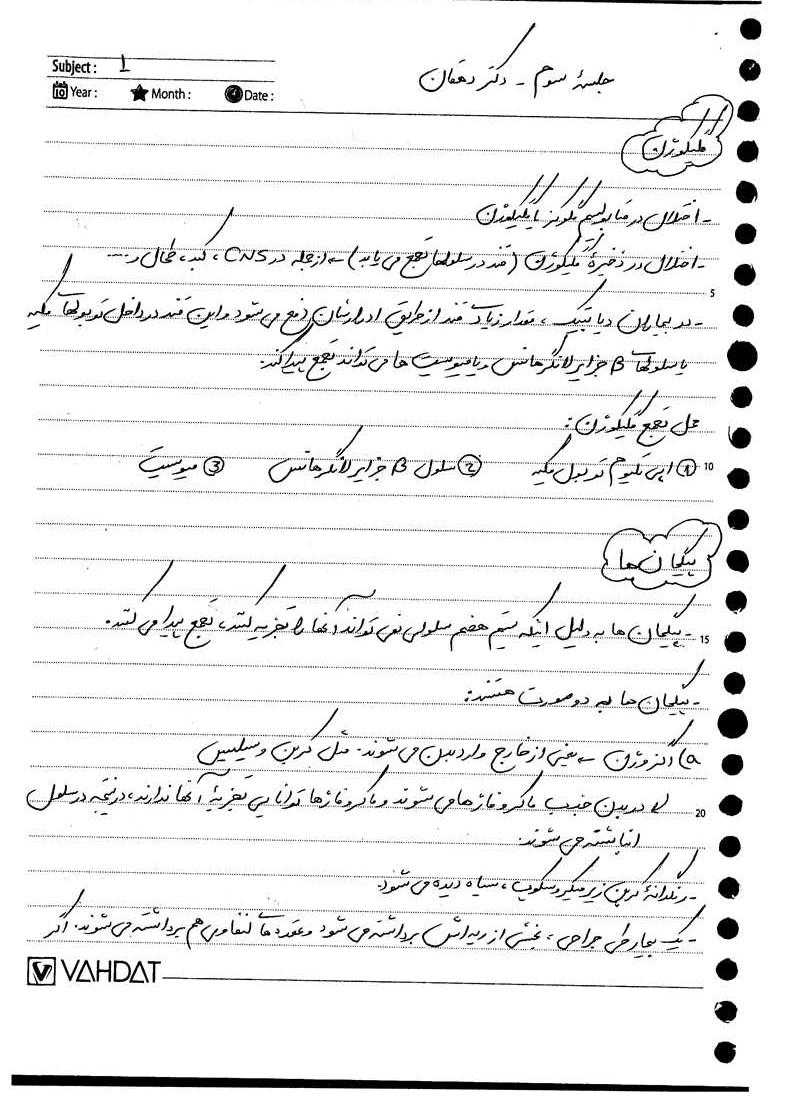 Subject: 1
Year: Month: Date:
جلسهٔ سوم - دکتر دهقان
گلیکوژن
- اختلال در متابولیسم گلوکز یا گلیکوژن
- اختلال در ذخیرهٔ گلیکوژن (قند در سلولها تجمع می یابد) ← از جمله در CNS، کبد، طحال و ....
5
- در بیماران دیابتیک، مقدار زیاد قند از طریق ادرارشان دفع می شود و این قند در داخل توبولهای کلیه
یا سلولهای β جزایر لانگرهانس و یا میوسیت ها می تواند تجمع پیدا کند.
محل تجمع گلیکوژن:
10
① اپی تلیوم توبول کلیه ② سلول β جزایر لانگرهانس ③ میوسیت
پیگمان ها
- پیگمان ها به دلیل اینکه سیستم هضم سلولی نمی تواند آنها را تجزیه کند، تجمع پیدا می کنند.
15
- پیگمان ها به دو صورت هستند:
a) اگزوژن ← یعنی از خارج وارد بدن می شوند. مثل کربن و سیلیس
↳ در بدن جذب ماکروفاژها می شوند و ماکروفاژها توانایی تجزیهٔ آنها ندارند، در نتیجه در سلول
20
انباشته می شوند.
- رنگدانهٔ کربن زیر میکروسکوپ، سیاه دیده می شود.
- یک بیمار طی جراحی، بخشی از ریه اش برداشته می شود و عقده های لنفاوی هم برداشته می شوند. اگر
VAHDAT